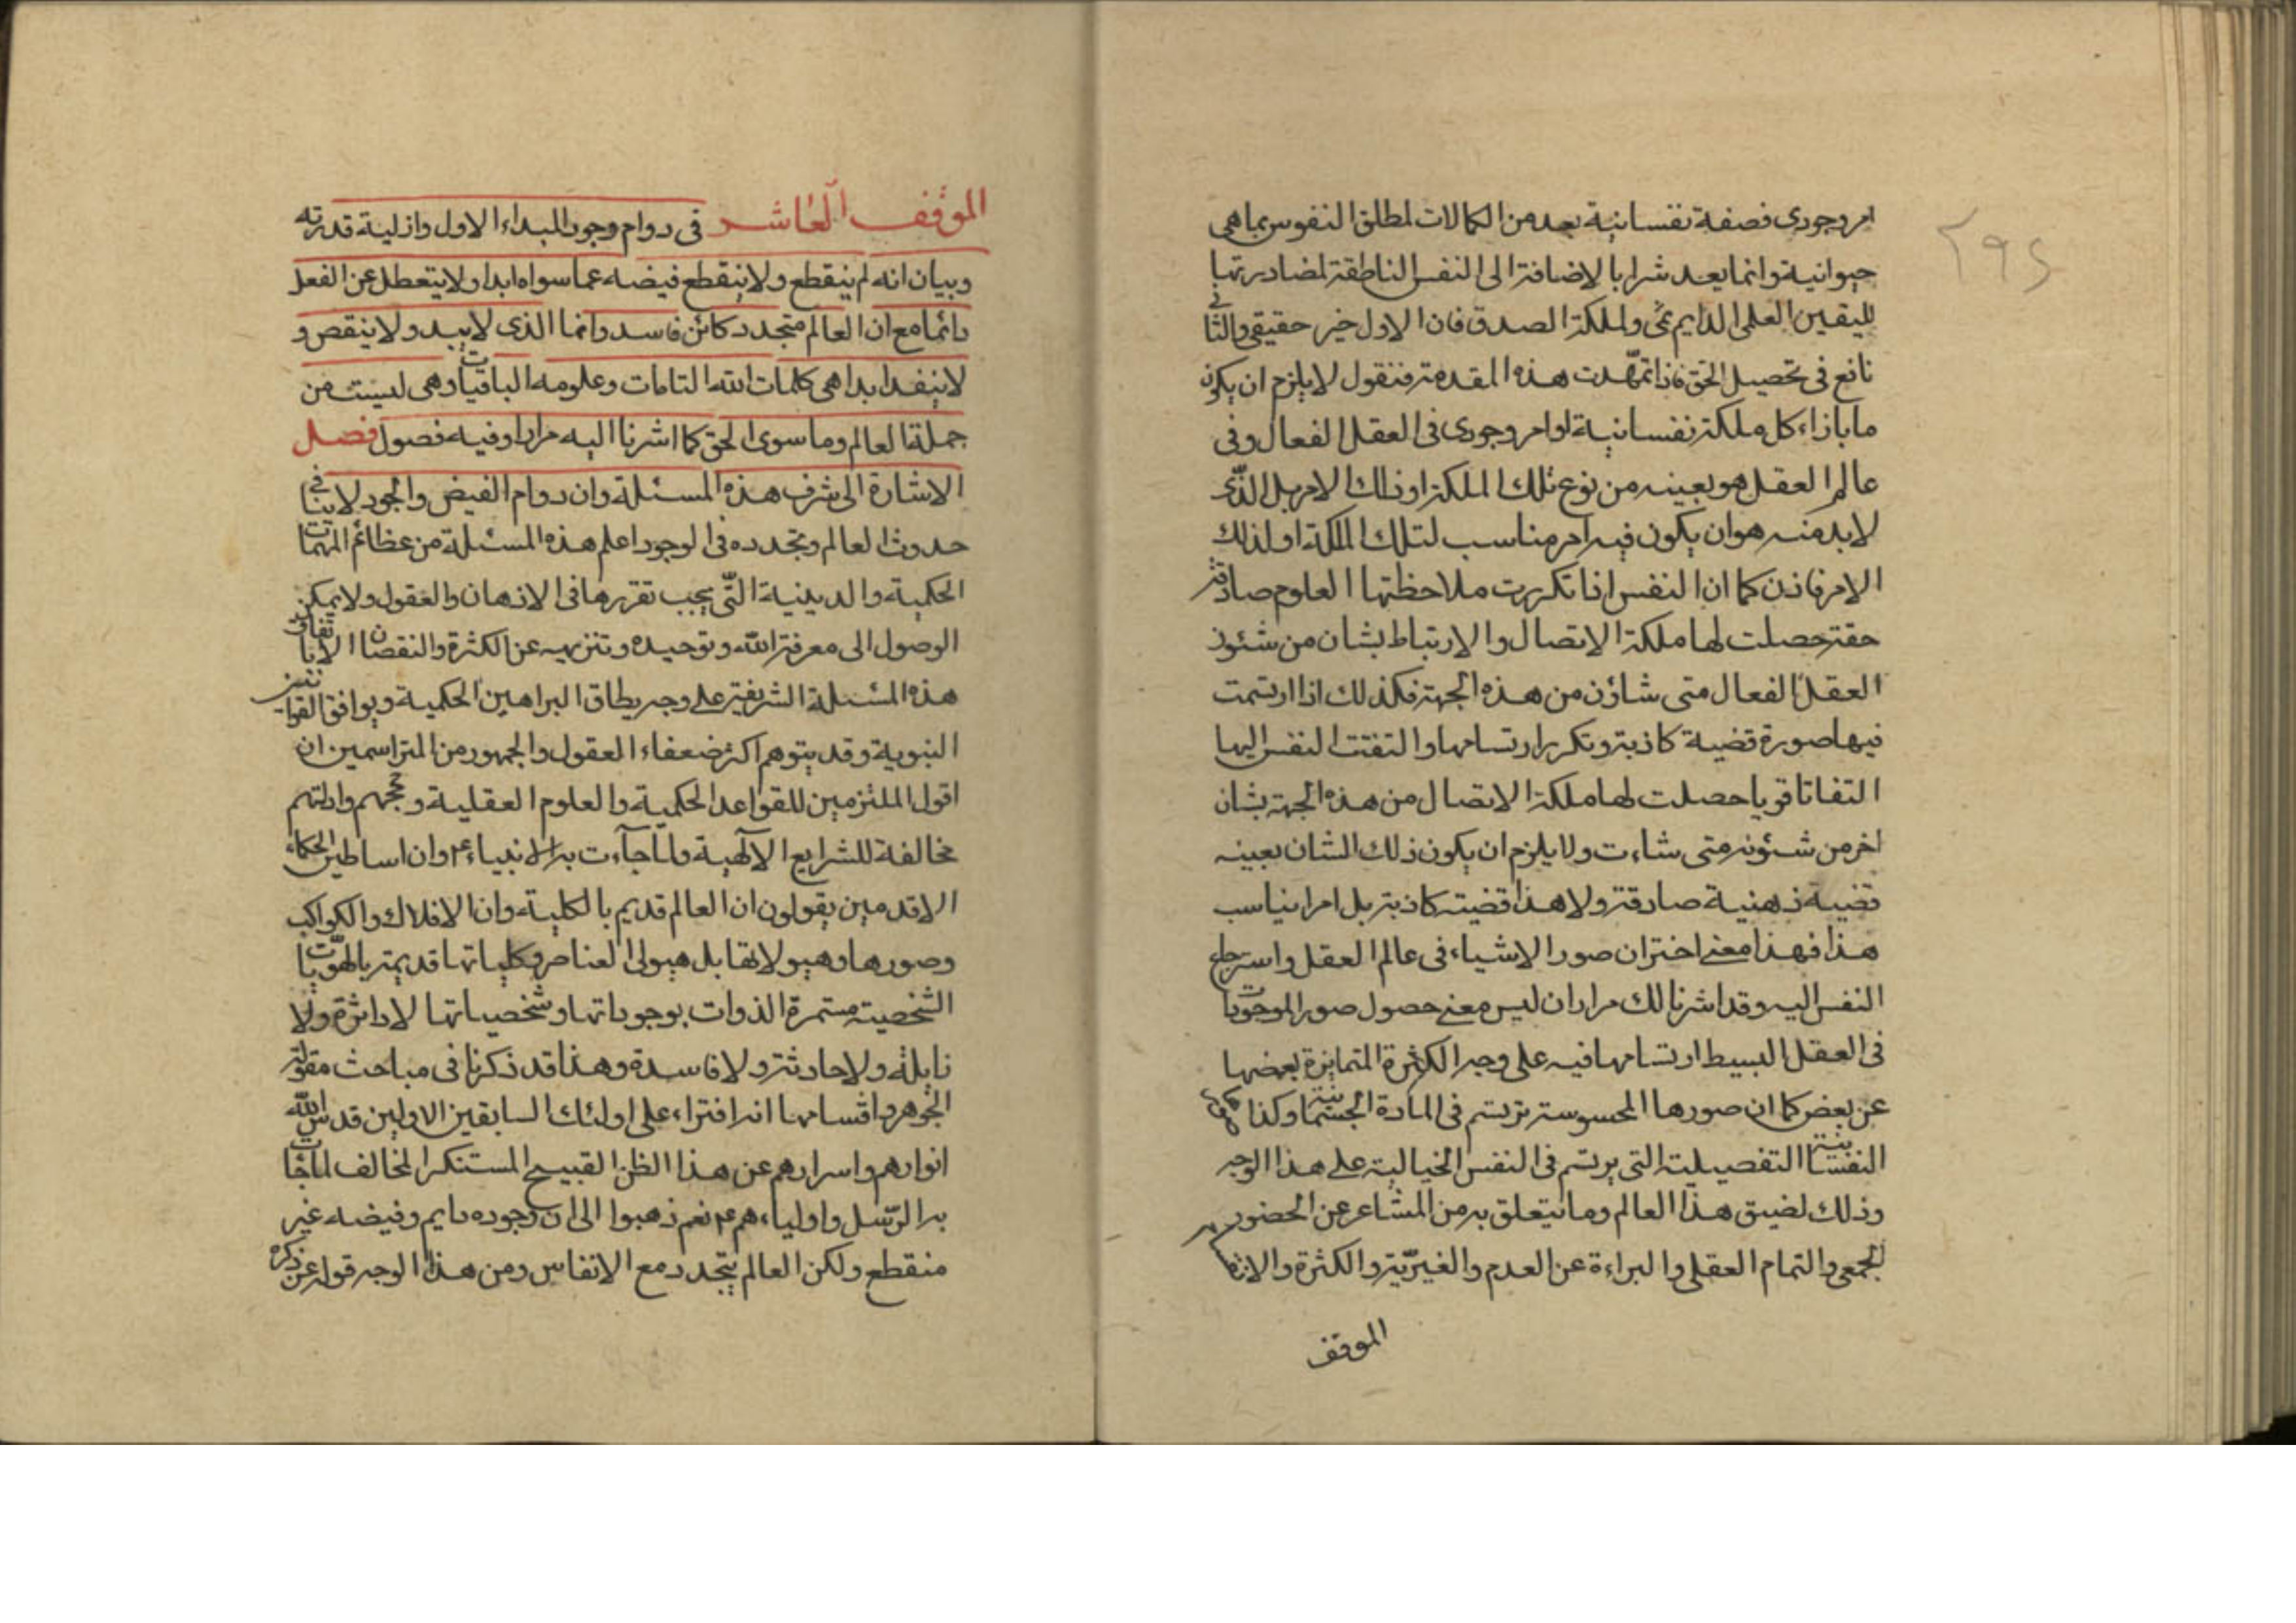 ٢٩٤
امر وجودى فصفة نفسانية يعد من الكمالات لمطلق النفوس بما هى
حيوانية وانما يعد شرا بالاضافة الى النفس الناطقة لمضادرتها
لليقين العلمى الدايمى والملكة الصدق فان الاول خير حقيقى والثانى
نافع فى تحصيل الحق فاذا تمهّدت هذه المقدمة فنقول لا يلزم ان يكون
ما بازاء كل ملكة نفسانية او امر وجودى فى العقل الفعال وفى
عالم العقل هو بعينه من نوع تلك الملكة او ذلك الامر بل الذّى
لا بد منه هو ان يكون فيه امر مناسب لتلك الملكة او لذلك
الامر فاذن كما ان النفس اذا تكررت ملاحظتها العلوم صادقة
حقة حصلت لها ملكة الاتصال والارتباط بشان من شئون
العقل الفعال متى شاؤن من هذه الجهة فكذلك اذا ارتسمت
فيها صورة قضية كاذبة وتكرر ارتسامها والتفتت النفس اليها
التفاتا قويا حصلت لها ملكة الاتصال من هذه الجهة بشان
اخر من شئونه متى شاءت ولا يلزم ان يكون ذلك الشان بعينه
قضية ذهنية صادقة ولا هذا قضية كاذبة بل امرا يناسب
هذا فهذا معنى اختزان صور الاشياء فى عالم العقل واسترجاع
النفس اليه وقد اشرنا لك مرارا ان ليس معنى حصول صور الموجودات
فى العقل البسيط ارتسامها فيه على وجه الكثرة المتمايزة بعضها
عن بعض كما ان صورها المحسوسة ترتسم فى المادة الجسمانية وكذا
النفسانية التفصيلية التى يرتسم فى النفس الخيالية على هذا الوجه
وذلك لضيق هذا العالم وما يتعلق به من المشاعر عن الحضور
الجمعى والتمام العقلى والبراءة عن العدم والغيريّة والكثرة والانقسام
الموقف
الموقف العاشر فى دوام وجود المبداء الاول وازلية قدرته
وبيان انه لم ينقطع ولا ينقطع فيضه عما سواه ابدا ولا يتعطل عن الفعل
دائما مع ان العالم متجدد كائن فاسد وانما الذى لا يبيد ولا ينقص و
لا ينفد ابدا هى كلمات الله التامات وعلومه الباقيات وهى ليست من
جملة العالم وما سوى الحق كما اشرنا اليه مرارا وفيه فصول فصل
الاشارة الى شرف هذه المسئلة وان دوام الفيض والجود لا ينافى
حدوث العالم وتجدده فى الوجود اعلم هذه المسئلة من عظائم المهمات
الحكمية والدينية التّى يجب تقررها فى الاذهان والعقول ولا يمكن
الوصول الى معرفة الله وتوحيده وتنزيهه عن الكثرة والنقصان الا باتقان
هذه المسئلة الشريفة على وجه يطاق البراهين الحكمية ويوافق القوانين
النبوية وقد يتوهم اكثر ضعفاء العقول والجمهور من المتراسمين ان
اقول الملتزمين للقواعد الحكمية والعلوم العقلية وحججهم وادلتهم
مخالفة للشرايع الآلهية ولما جآءت به الانبياء ع وان اساطين الحكماء
الاقدمين يقولون ان العالم قديم بالكلية وان الافلاك والكواكب
وصورها وهيولاتها بل هيولى العناصر وكلياتها قديمة بالهوّيات
الشخصية مستمرة الذوات بوجوداتها وشخصياتها لا داثرة ولا
زايلة ولا حادثة ولا فاسدة وهذا قد ذكرنا فى مباحث مقولة
الجوهر واقسامها انه افتراء على اولئك السابقين الاولين قدس الله
انوارهم واسرارهم عن هذا الظن القبيح المستنكر المخالف لما جات
به الرّسل واولياءهم ع نعم ذهبوا الى ان وجوده دايم وفيضه غير
منقطع ولكن العالم يتجدد مع الانفاس ومن هذا الوجه قوله عن ذكره